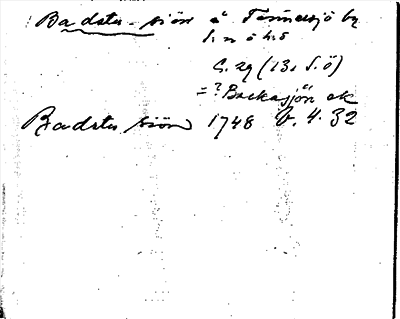 Badstu-siön å Tännesjö by
S. n ö h s
G. 29 (131 S. Ö)
= ? Backasjön ek
Badstu siön 1748 b. 4. 32